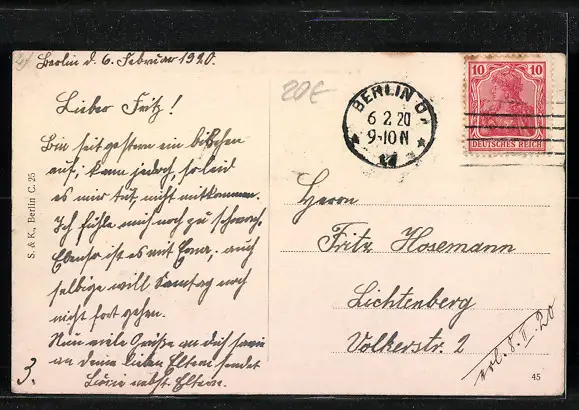 Berlin d. 6. Februar 1920.
Lieber Fritz!
Bin seit gestern ein bißchen
auf, kann jedoch, so leid
es mir tut, nicht mitkommen.
Ich fühle mich noch zu schwach.
Ebenso ist es mit Erna, auch
selbige will Sonntag noch
nicht fort gehen.
Nun viele Grüße an dich sowie
an deine lieben Eltern sendet
nebst Eltern.
3.
S. & K., Berlin C. 25
20€
BERLIN O
6 2 20
9-10 N
17
10 10
DEUTSCHES REICH
Herrn
Fritz Hosemann
Lichtenberg
Volkerstr. 2
erh. 8. II. 20
45